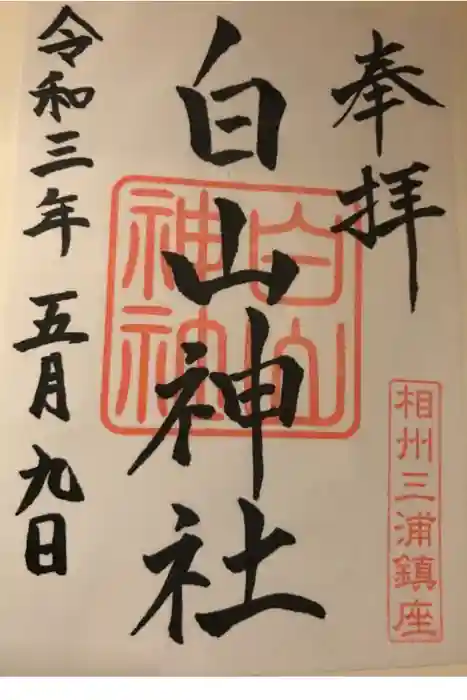 奉拝
相州三浦鎮座
白山神社
白山
神社
令和三年 五月九日